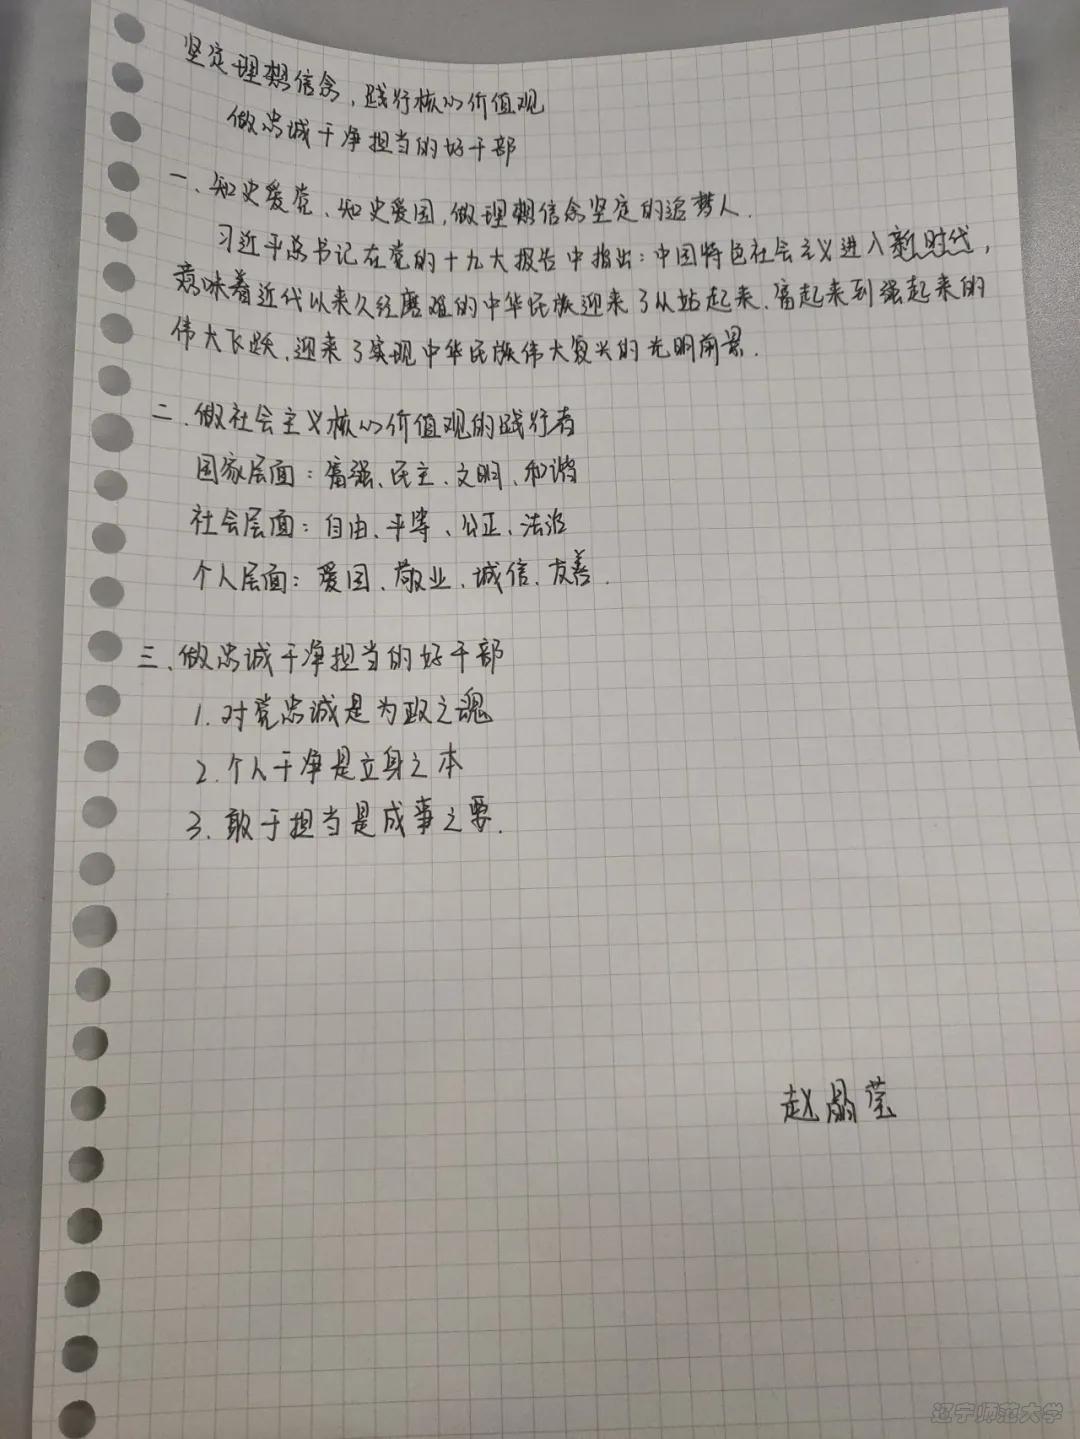 坚定理想信念，践行核心价值观
做忠诚干净担当的好干部
一、知史爱党、知史爱国，做理想信念坚定的追梦人.
习近平总书记在党的十九大报告中指出：中国特色社会主义进入新时代，
意味着近代以来久经磨难的中华民族迎来了从站起来、富起来到强起来的
伟大飞跃，迎来了实现中华民族伟大复兴的光明前景.
二、做社会主义核心价值观的践行者
国家层面：富强、民主、文明、和谐
社会层面：自由、平等、公正、法治
个人层面：爱国、敬业、诚信、友善.
三、做忠诚干净担当的好干部
1. 对党忠诚是为政之魂
2. 个人干净是立身之本
3. 敢于担当是成事之要.
赵晶莹
辽宁师范大学